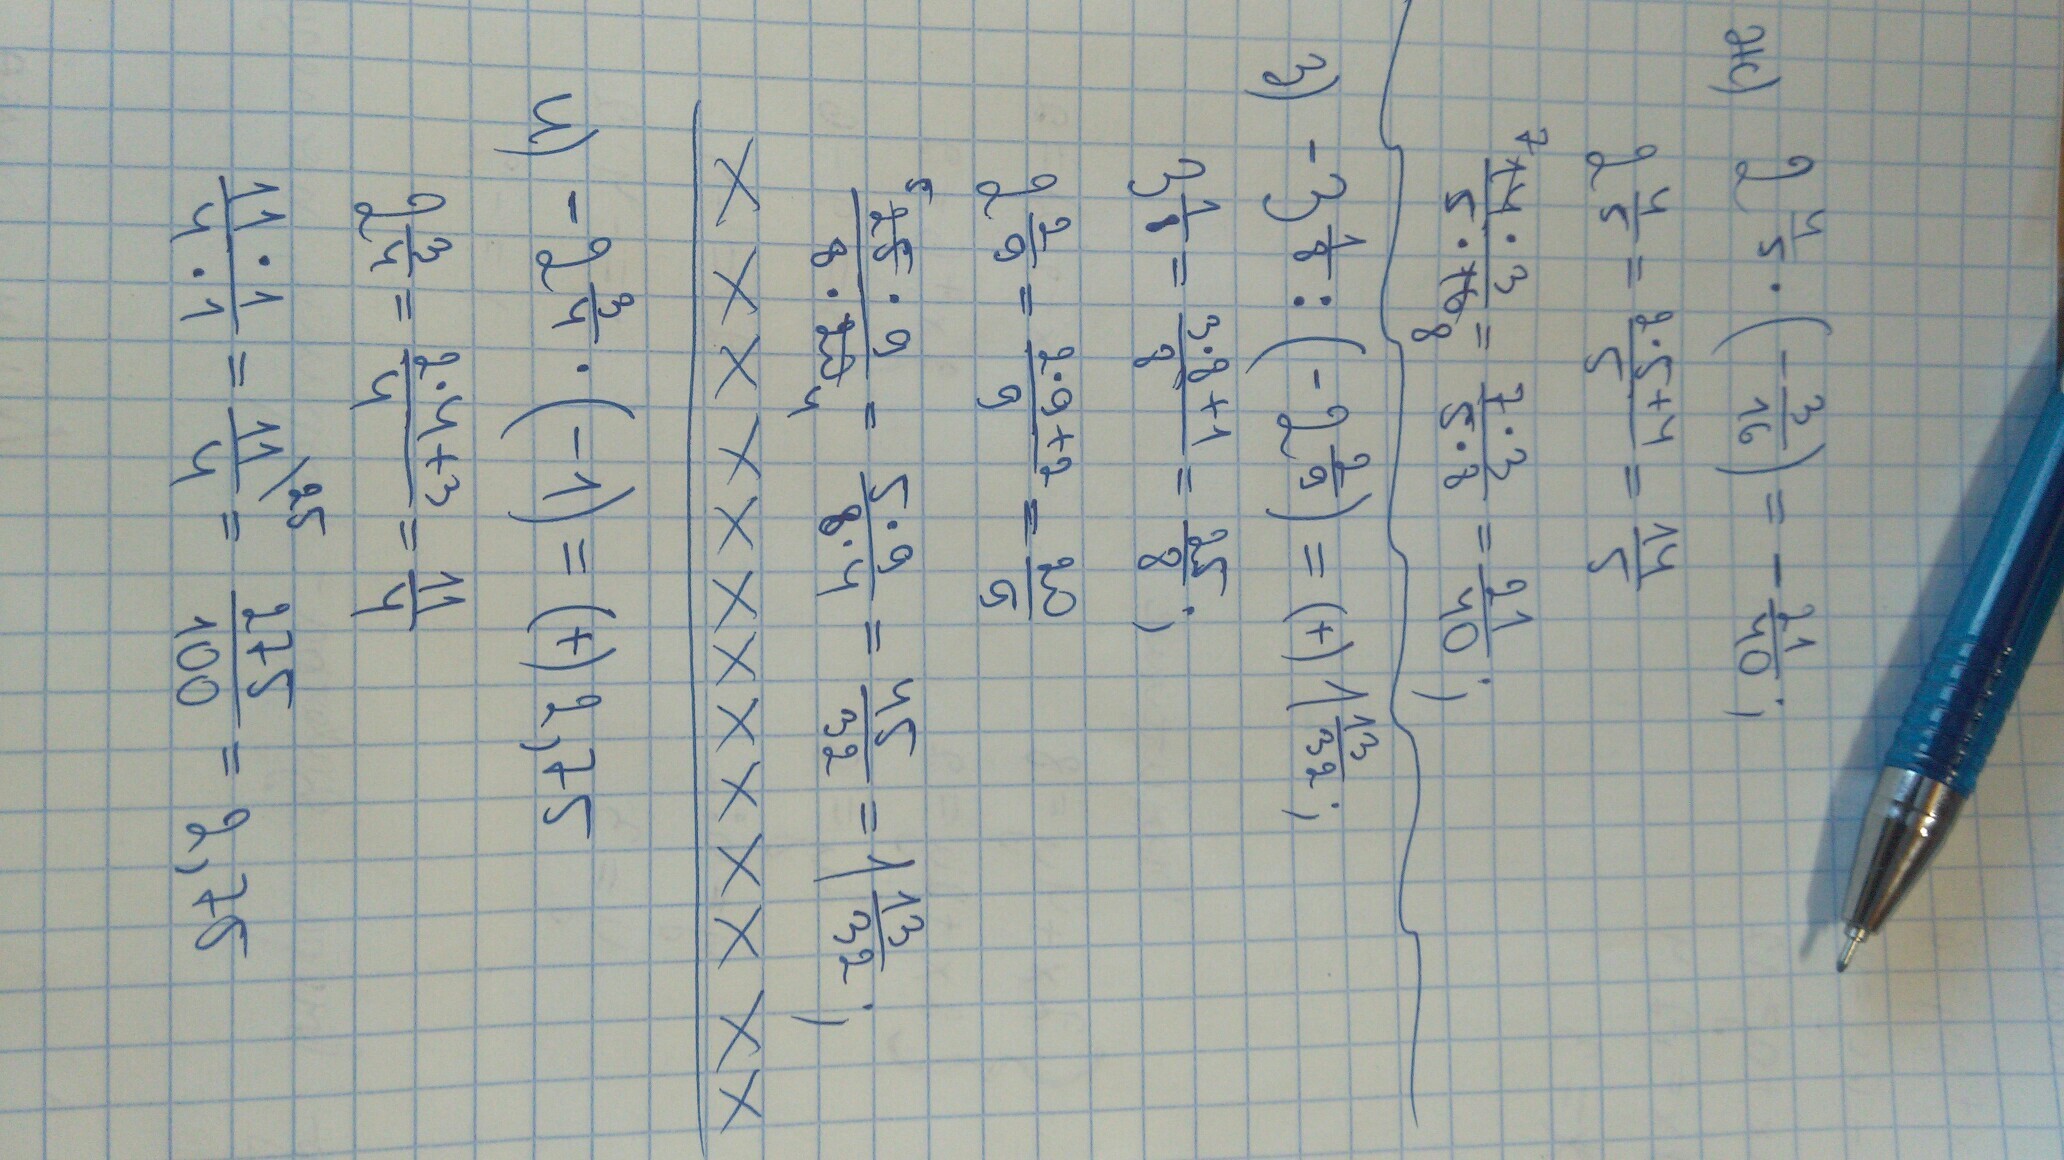 ж) 2 4/5 · (- 3/16) = - 21/40;
2 4/5 = (2·5+4)/5 = 14/5
(14·3)/(5·16) 7 8 = (7·3)/(5·8) = 21/40;
з) -3 1/8 : (-2 2/9) = (+) 1 13/32;
3 1/8 = (3·8+1)/8 = 25/8;
2 2/9 = (2·9+2)/9 = 20/9
5 (25·9)/(8·20) 4 = (5·9)/(8·4) = 45/32 = 1 13/32;
X X X X X X X X X X X X X
и) -2 3/4 · (-1) = (+) 2,75
2 3/4 = (2·4+3)/4 = 11/4
(11·1)/(4·1) = 11/4 /25 = 275/100 = 2,75